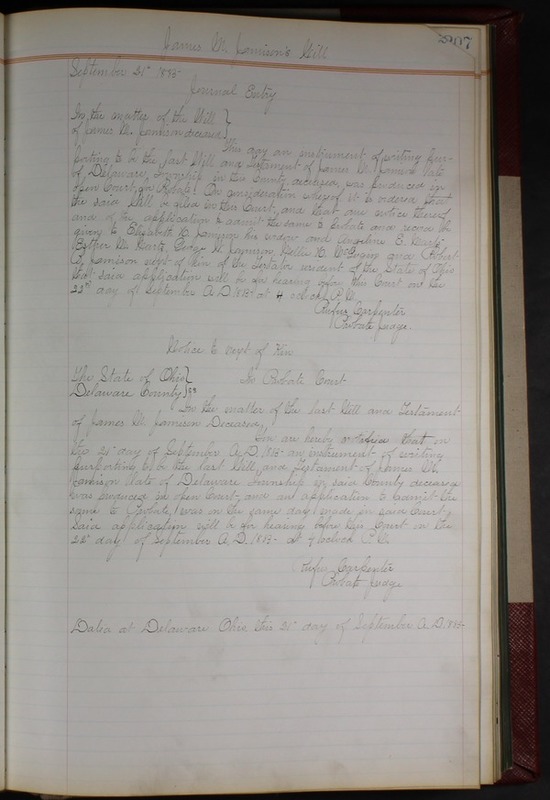 James W. Jamison's Will
207
September 21" 1893-
Journal Entry
In the matter of the Will }
of James W. Jamison deceased }
This day an instrument of writing pur-
porting to be the last Will and Testament of James W. Jamison late
of Delaware Township in this County, deceased, was produced in
open Court, for Probate. On consideration whereof it is ordered that
the said Will be filed in this Court, and that due notice thereof
and of the application to admit the same to Probate and record be
given to Elizabeth H. Jamison his widow and Angeline E.
Esther M. Jamison, Nellie and Robert
Jamison next of kin of the Testator resident of the State of Ohio
that said application will be for hearing before this Court on the
22nd day of September A.D. 1893- at 4 oclock P.M.
Rufus Carpenter
Probate Judge.
Notice to next of Kin
The State of Ohio } In Probate Court
Delaware County } SS
In the matter of the last Will and Testament
of James W. Jamison Deceased,
You are hereby notified that on
the 21" day of September A.D. 1893- an instrument of writing
purporting to be the last Will, and Testament of James W.
Jamison late of Delaware Township in said County deceased
was produced in open Court, and an application to admit the
same to Probate, was on the same day made in said Court,
Said application will be for hearing before this Court on the
22" day of September A.D. 1893- at 4 oclock P.M.
Rufus Carpenter
Probate Judge
Dated at Delaware Ohio this 21" day of September A.D. 1893-